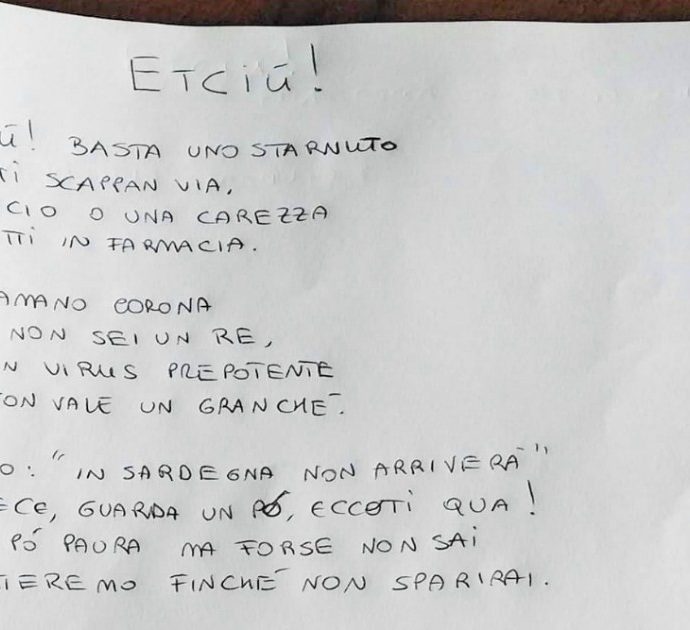 ETCIŪ!
Ū! BASTA UNO STARNUTO
TI SCAPPAN VIA,
CIO O UNA CAREZZA
TTI IN FARMACIA.
AMANO CORONA
NON SEI UN RE,
N VIRUS PREPOTENTE
ON VALE UN GRANCHÉ.
O: "IN SARDEGNA NON ARRIVERÀ"
ECE, GUARDA UN PÓ, ECCOTI QUA!
PÓ PAURA MA FORSE NON SAI
TIEREMO FINCHÉ NON SPARIRAI.